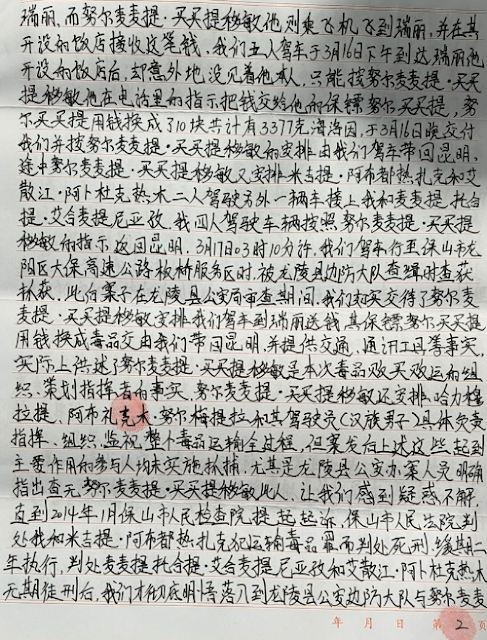 瑞丽,而努尔麦麦提·买买提穆敏他则乘飞机飞到瑞丽,并在其
开设的饭店接收这笔钱。我们五人驾车于3月16日下午到达瑞丽他
开设的饭店后,却意外地没见着他本人,只能按努尔麦麦提·买买
提穆敏他在电话里的指示把钱交给他的保镖努尔买买提,努
尔买买提用钱换成了10块共计有3377克海洛因,于3月16日晚交付
我们并按努尔麦麦提·买买提穆敏的安排由我们驾车带回昆明,
途中努尔麦麦提·买买提穆敏又安排米吉提·阿布都热扎克和艾
散江·阿卜杜克热木二人驾驶另外一辆车接上我和麦麦提·托合
提·艾合麦提尼亚孜,我四人驾驶车辆按照努尔麦麦提·买买提
穆敏的指示返回昆明,3月17日03时10分许,我们驾车行至保山市龙
阳区大保高速公路板桥服务区时,被龙陵县边防大队查缉时查获
抓获。此后案子在龙陵县公安局审查期间,我们如实交待了努尔麦
麦提·买买提穆敏安排我们驾车到瑞丽送钱,其保镖努尔买买提
用钱换成毒品交由我们带回昆明,并提供交通、通讯工具等事实,
实际上供述了努尔麦麦提·买买提穆敏是本次毒品贩买贩运的组
织、策划指挥者的事实,努尔麦麦提·买买提穆敏还安排哈力穆
拉提,阿布札克木·努尔梅提拉和其驾驶员(汉族男子)具体负责
指挥、组织、监视整个毒品运输全过程,但案发后上述这些起到
主要作用的参与人均未实施抓捕,尤其是龙陵县公安办案人员明确
指出查无努尔麦麦提·买买提穆敏此人,让我们感到疑惑不解,
直到2014年1月保山市人民检查院提起起诉,保山市人民法院判
处我和米吉提·阿布都热扎克犯运输毒品罪而判处死刑,缓期二
年执行,判处麦麦提托合提·艾合麦提尼亚孜和艾散江·阿卜杜克热木
无期徒刑后,我们才彻底明悟落入到龙陵县公安边防大队与努尔麦麦
年 月 日 第2页